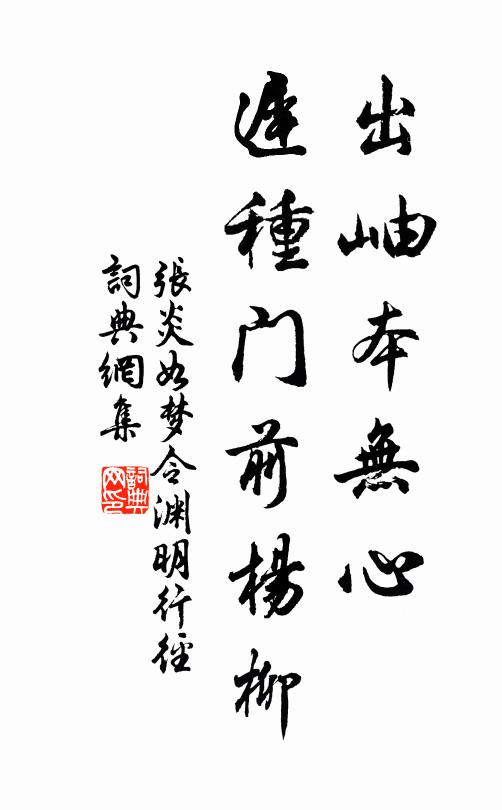 出岫本無心
遲種門前楊柳
張炎如梦令渊明行徑
詞典網集
詞典网印